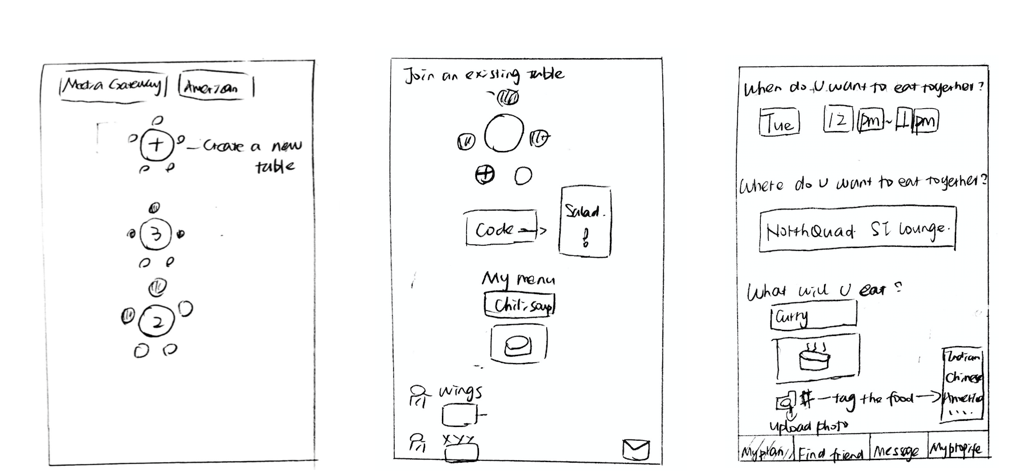 Media Gateway American
+ Create a new
table
3
2
Join an existing table
+
Code
Salad.
!
My menu
Chili soup
wings
XYZ
When do U want to eat together?
Tue 12 pm ~ 1 pm
Where do U want to eat together?
North Quad SI Lounge.
What will U eat?
Curry
# tag the food
Indian
Chinese
America
....
upload photo
My plan Find friend Message My profile